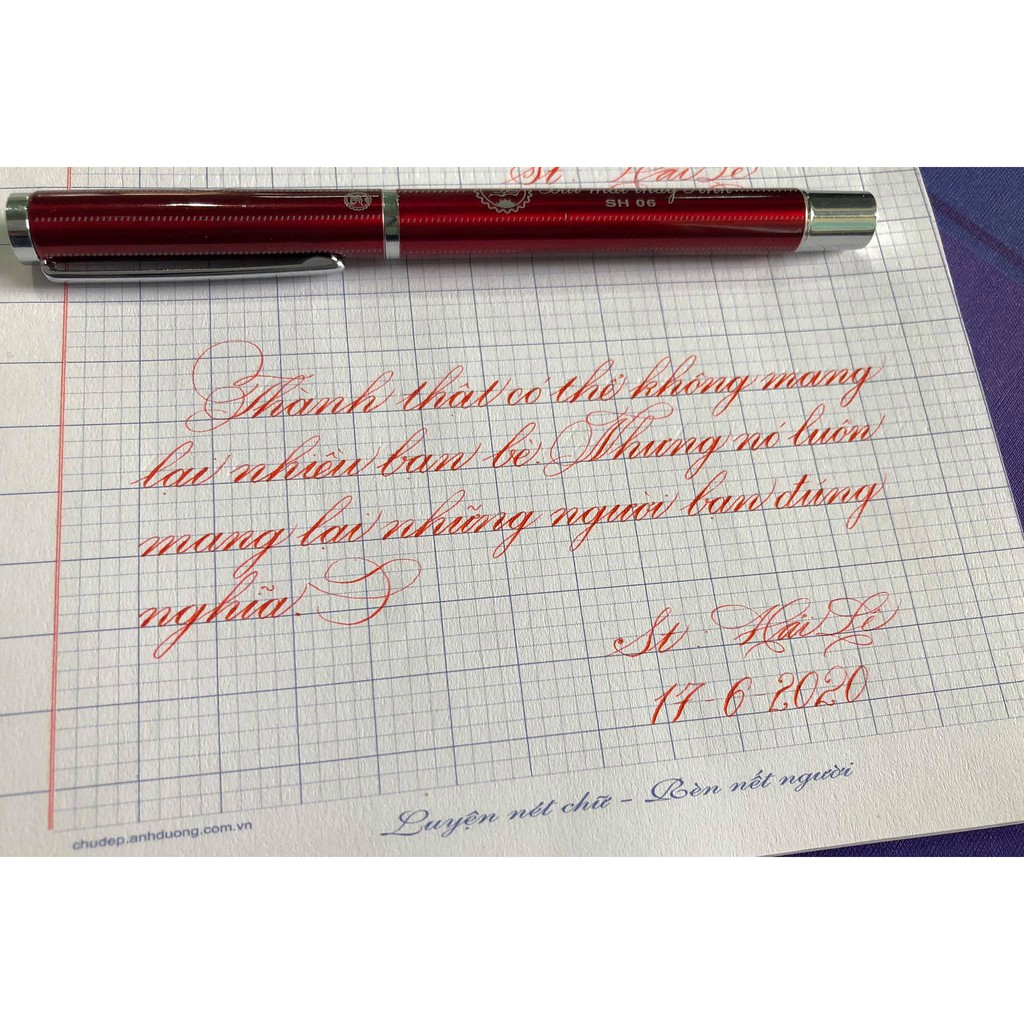 St: Hải Lê
SH 06
Thành thật có thể không mang
lại nhiều bạn bè. Nhưng nó luôn
mang lại những người bạn đúng
nghĩa.
St: Hải Lê
17-6-2020
Luyện nét chữ - Rèn nết người
chudep.anhduong.com.vn